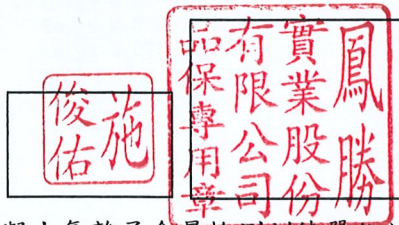 鳳勝
實業股份
有限公司
品保專用章
施
俊佑